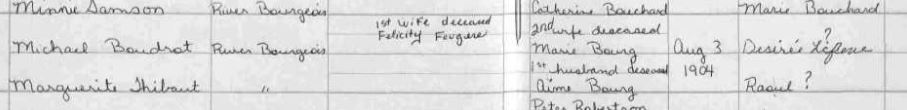 Minnie Samson River Bourgeois Catherine Bouchard Marie Bouchard
1st wife deceased 2nd wife deceased
Felicity Fougere
Michael Boudrot River Bourgeois Marie Bourg Aug 3 Desirée ?
1st husband deceased 1904
Marguerite Thibaut " Aime Bourg Raoul ?
Peter Robertson